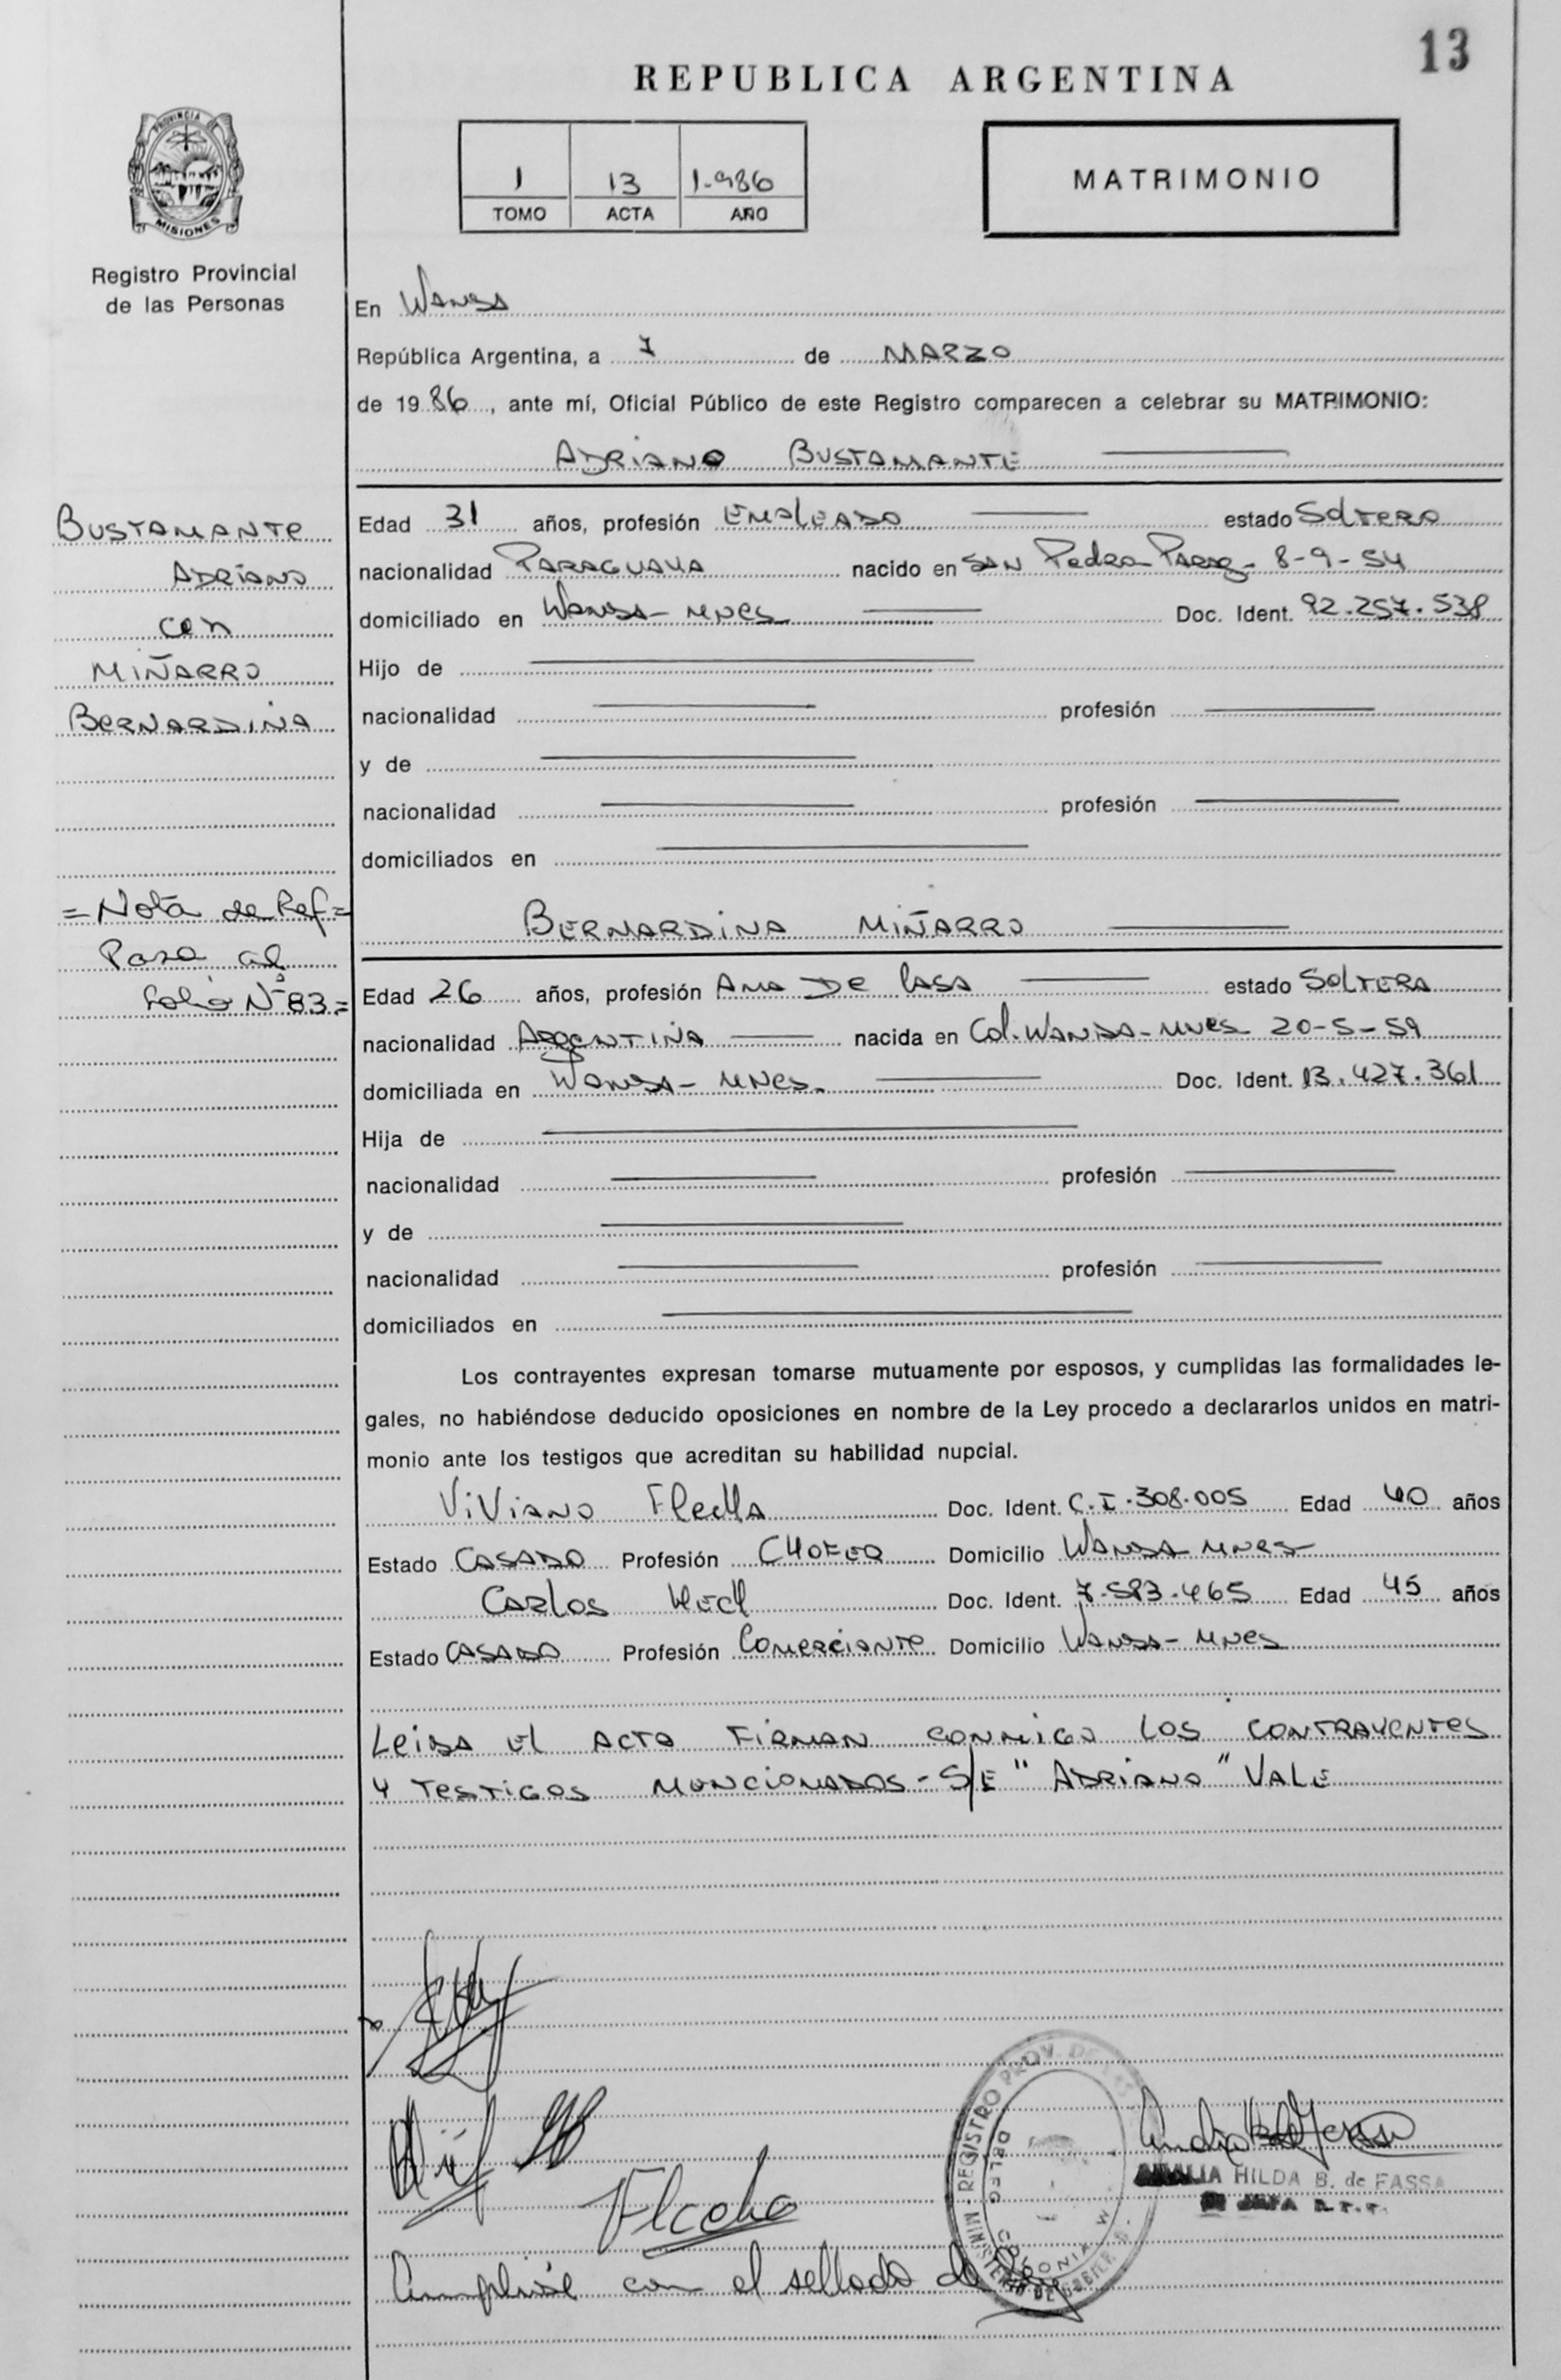 13
REPUBLICA ARGENTINA
PROVINCIA DE
MISIONES
1 13 1.986
TOMO ACTA AÑO
MATRIMONIO
Registro Provincial
de las Personas
En WANDA
República Argentina, a 7 de MARZO
de 1986, ante mí, Oficial Público de este Registro comparecen a celebrar su MATRIMONIO:
ADRIANO BUSTAMANTE
BUSTAMANTE
ADRIANO
con
MIÑARRO
BERNARDINA
= Nota de Ref =
Pasa al
Folio Nº 83 =
Edad 31 años, profesión EMPLEADO estado SOLTERO
nacionalidad PARAGUAYA nacido en SAN Pedro Parag- 8-9-54
domiciliado en WANDA - MNES Doc. Ident. 92.257.538
Hijo de
nacionalidad profesión
y de
nacionalidad profesión
domiciliados en
BERNARDINA MIÑARRO
Edad 26 años, profesión AMA DE CASA estado SOLTERA
nacionalidad ARGENTINA nacida en Col. WANDA - MNES 20-5-59
domiciliada en WANDA - MNES. Doc. Ident. 13.427.361
Hija de
nacionalidad profesión
y de
nacionalidad profesión
domiciliados en
Los contrayentes expresan tomarse mutuamente por esposos, y cumplidas las formalidades le-
gales, no habiéndose deducido oposiciones en nombre de la Ley procedo a declararlos unidos en matri-
monio ante los testigos que acreditan su habilidad nupcial.
VIVIANO Doc. Ident. C.I. 308.005 Edad 40 años
Estado CASADO Profesión CHOFER Domicilio WANDA MNES
CARLOS Doc. Ident. 7.583.465 Edad 45 años
Estado CASADO Profesión COMERCIANTE Domicilio WANDA - MNES
LEIDA EL ACTA FIRMAN CONMIGO LOS CONTRAYENTES
Y TESTIGOS MENCIONADOS - S/E " ADRIANO " VALE
REGISTRO PROV. DE
AMALIA HILDA B. de FASSA
Cumplise con el sellado de Ley